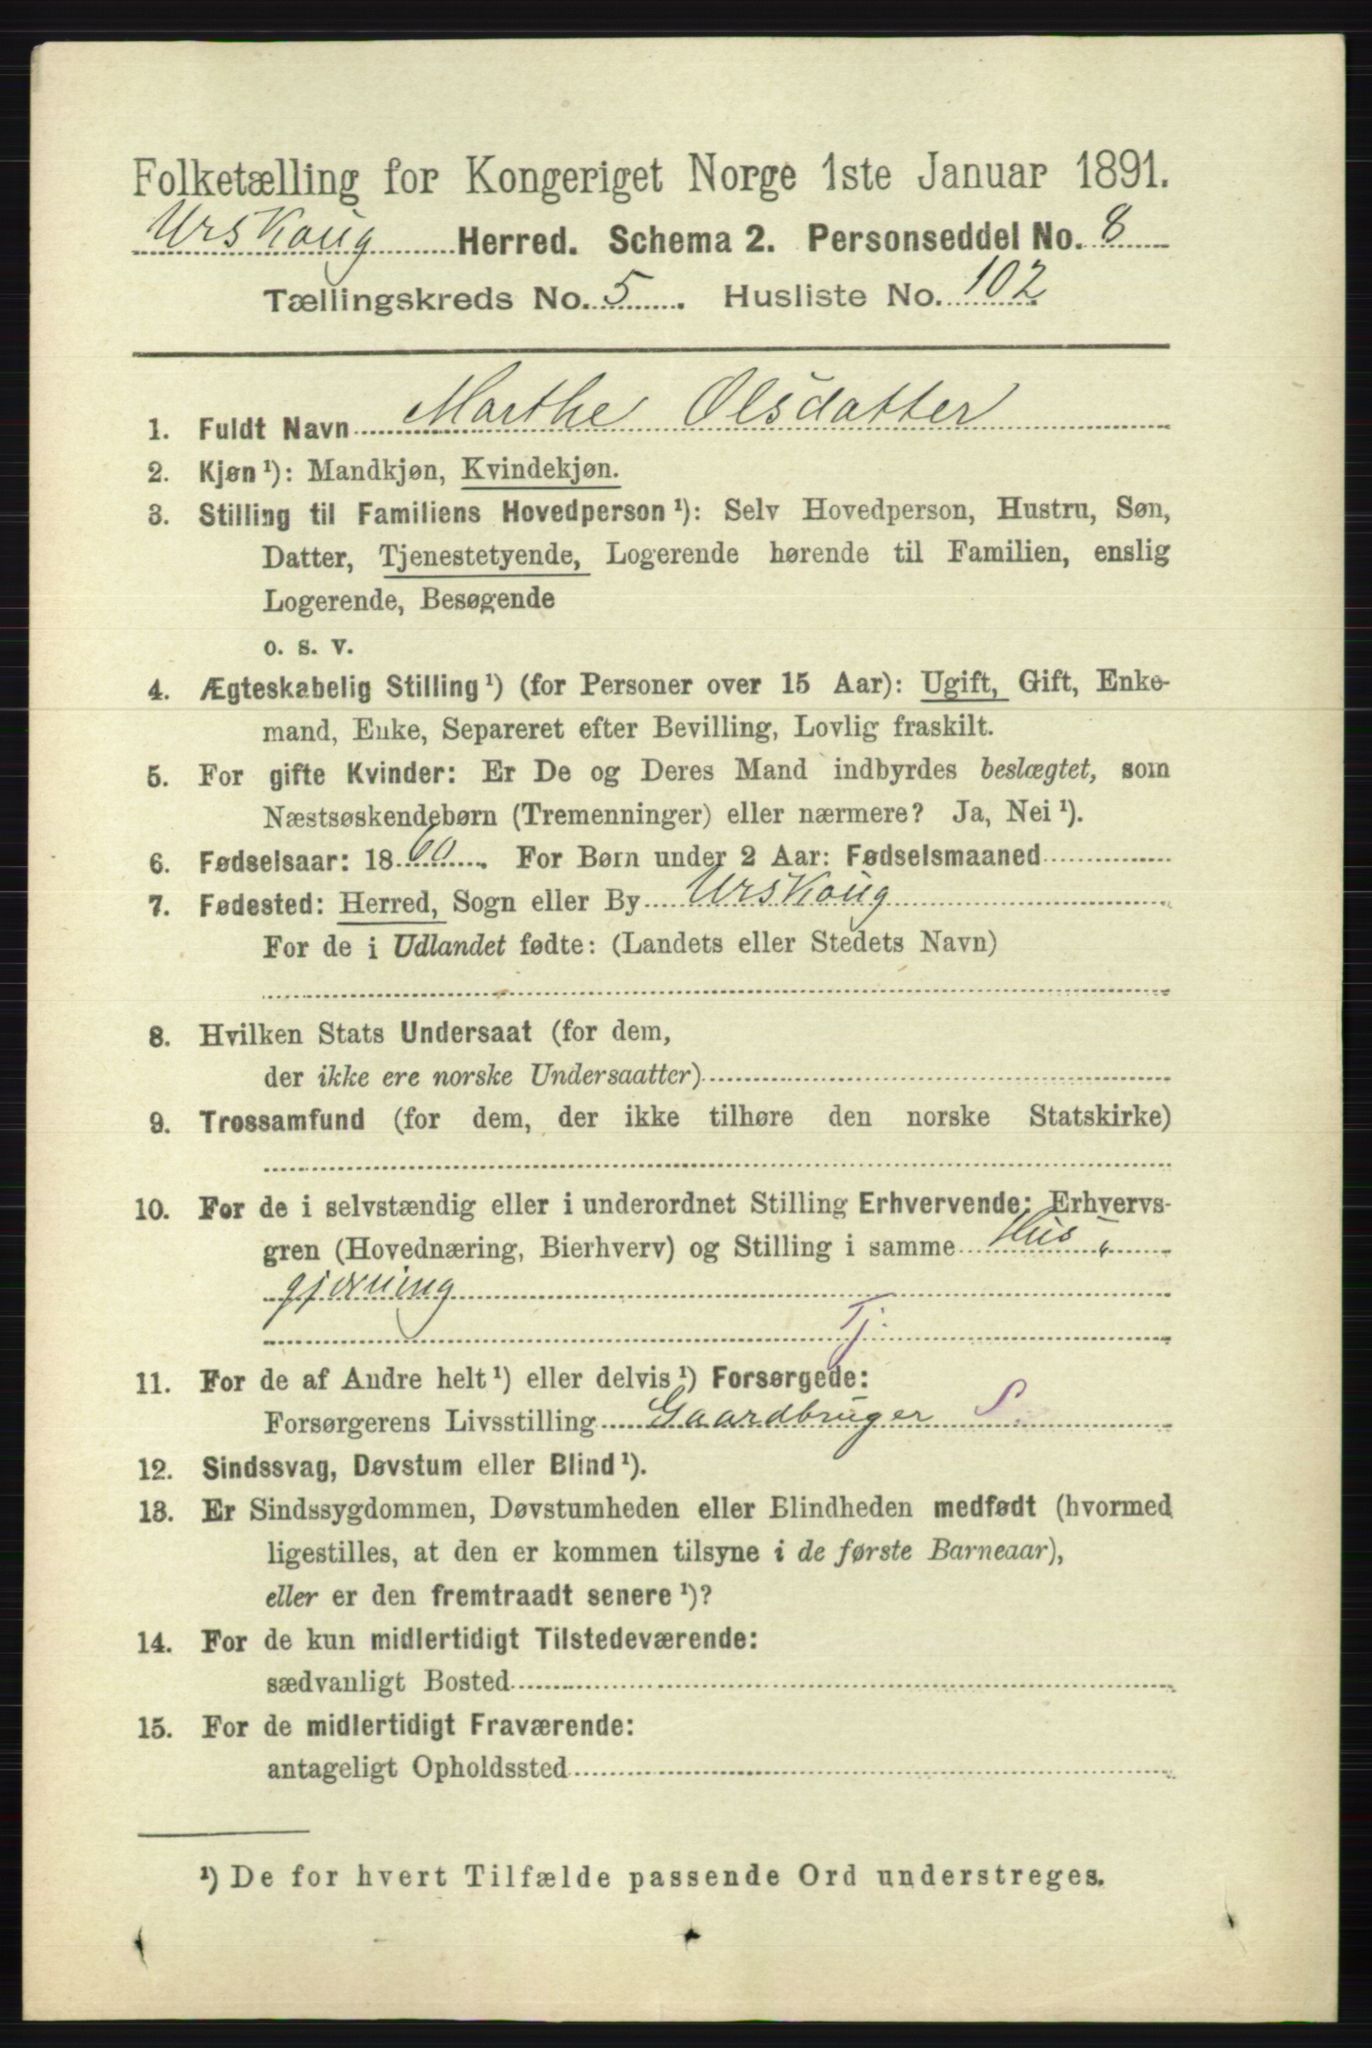 Folketælling for Kongeriget Norge 1ste Januar 1891.
Urskoug Herred. Schema 2. Personseddel No. 8
Tællingskreds No. 5. Husliste No. 102
1. Fuldt Navn Marthe Olsdatter
2. Kjøn ¹): Mandkjøn, Kvindekjøn.
3. Stilling til Familiens Hovedperson ¹): Selv Hovedperson, Hustru, Søn,
Datter, Tjenestetyende, Logerende hørende til Familien, enslig
Logerende, Besøgende
o. s. v.
4. Ægteskabelig Stilling ¹) (for Personer over 15 Aar): Ugift, Gift, Enke-
mand, Enke, Separeret efter Bevilling, Lovlig fraskilt.
5. For gifte Kvinder: Er De og Deres Mand indbyrdes beslægtet, som
Næstsøskendebørn (Tremenninger) eller nærmere? Ja, Nei ¹).
6. Fødselsaar: 1860. For Børn under 2 Aar: Fødselsmaaned
7. Fødested: Herred, Sogn eller By Urskoug
For de i Udlandet fødte: (Landets eller Stedets Navn)
8. Hvilken Stats Undersaat (for dem,
der ikke ere norske Undersaatter)
9. Trossamfund (for dem, der ikke tilhøre den norske Statskirke)
10. For de i selvstændig eller i underordnet Stilling Erhvervende: Erhvervs-
gren (Hovednæring, Bierhverv) og Stilling i samme Hus„
gjerning
Tj.
11. For de af Andre helt ¹) eller delvis ¹) Forsørgede:
Forsørgerens Livsstilling Gaardbruger S.
12. Sindssvag, Døvstum eller Blind ¹).
13. Er Sindssygdommen, Døvstumheden eller Blindheden medfødt (hvormed
ligestilles, at den er kommen tilsyne i de første Barneaar),
eller er den fremtraadt senere ¹)?
14. For de kun midlertidigt Tilstedeværende:
sædvanligt Bosted
15. For de midlertidigt Fraværende:
antageligt Opholdssted
¹) De for hvert Tilfælde passende Ord understreges.